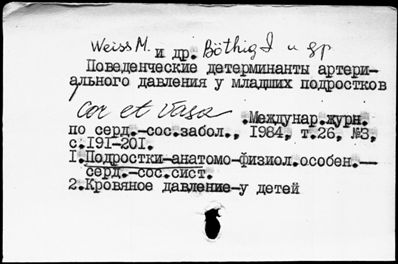 Weiss M. и др. Böthig I и др
Поведенческие детерминанты артери-
ального давления у младших подростков
Cor et Vasa .Междунар.журн.
по серд.-сос.забол., 1984, т.26, №3,
с.191-201.
1.Подростки-анатомо-физиол.особен.—
серд.-сос.сист.
2.Кровяное давление-у детей